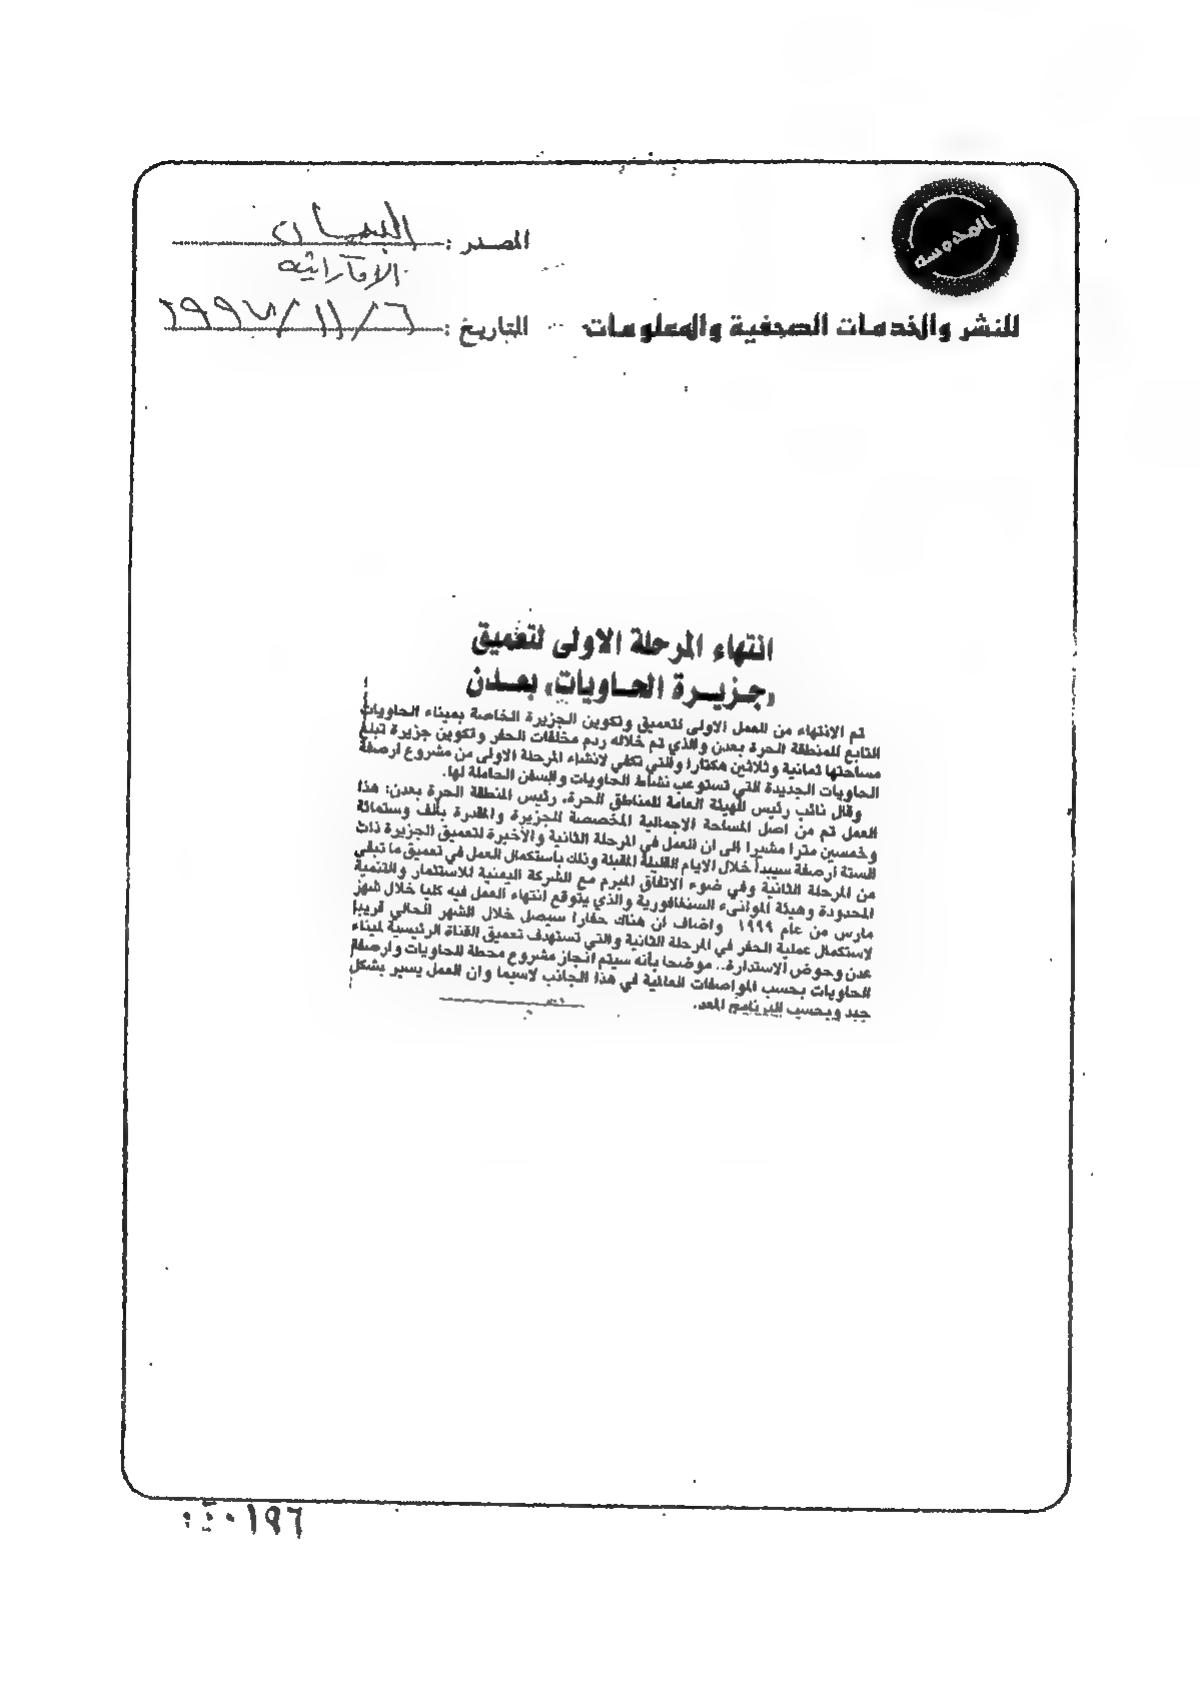 المصدر : البيان
الاماراتيه
للنشر والخدمات الصحفية والمعلومات
التاريخ : ٦/ ١١/ ١٩٩٧
انتهاء المرحلة الاولى لتعميق
«جزيرة الحاويات» بعدن
تم الانتهاء من العمل الاولى لتعميق وتكوين الجزيرة الخاصة بميناء الحاويات
التابع للمنطقة الحرة بعدن والذي تم خلاله ردم مخلفات الحفر وتكوين جزيرة تبلغ
مساحتها ثمانية وثلاثين هكتارا والتي تكفي لانشاء المرحلة الاولى من مشروع ارصفة
الحاويات الجديدة التي تستوعب نشاط الحاويات والسفن الحاملة لها.
وقال نائب رئيس الهيئة العامة للمناطق الحرة، رئيس المنطقة الحرة بعدن: هذا
العمل تم من اصل المساحة الاجمالية المخصصة للجزيرة والمقدرة بألف وستمائة
وخمسين مترا مشيرا الى ان العمل في المرحلة الثانية والأخيرة لتعميق الجزيرة ذات
الستة أرصفة سيبدأ خلال الايام القليلة المقبلة وذلك باستكمال العمل في تعميق ما تبقى
من المرحلة الثانية وفي ضوء الاتفاق المبرم مع الشركة اليمنية للاستثمار والتنمية
المحدودة وهيئة الموانىء السنغافورية والذي يتوقع انتهاء العمل فيه كليا خلال شهر
مارس من عام ١٩٩٩ واضاف ان هناك حفارا سيصل خلال الشهر الحالي قريبا
لاستكمال عملية الحفر في المرحلة الثانية والتي تستهدف تعميق القناة الرئيسية لميناء
عدن وحوض الاستدارة.. موضحا بأنه سيتم انجاز مشروع محطة للحاويات وارصفة
الحاويات بحسب المواصفات العالمية في هذا الجانب لاسيما وان العمل يسير بشكل
جيد وبحسب البرنامج المعد.
٠١٩٦